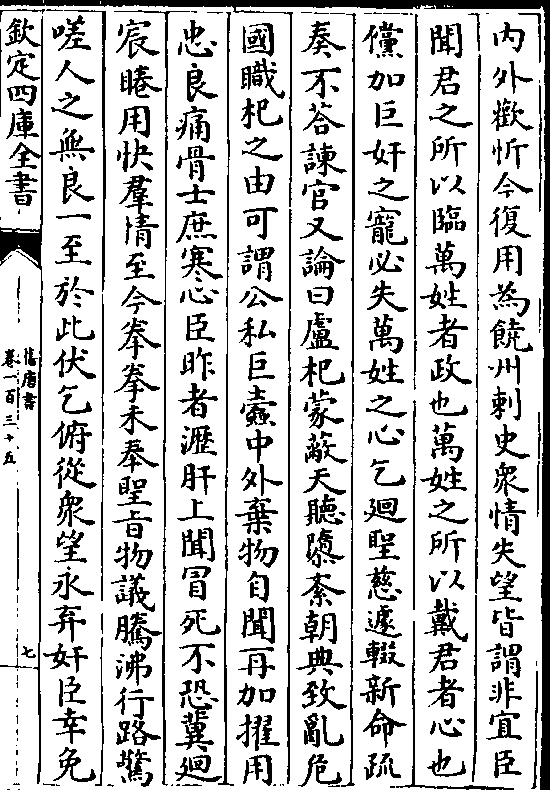 內外歡忻今復用為饒州刺史衆情失望皆謂非宜臣
聞君之所以臨萬姓者政也萬姓之所以戴君者心也
儻加巨奸之寵必失萬姓之心乞廻聖慈遽輟新命疏
奏不答諫官又論曰盧杞蒙蔽天聽隳紊朝典致亂危
國職杞之由可謂公私巨蠧中外棄物自聞再加擢用
忠良痛骨士庶寒心臣昨者瀝肝上聞冒死不恐冀廻
宸睠用快羣情至今拳拳未奉聖旨物議騰沸行路驚
嗟人之無良一至於此伏乞俯從衆望永弃奸臣幸免
欽定四庫全書
舊唐書
卷一百三十五
七